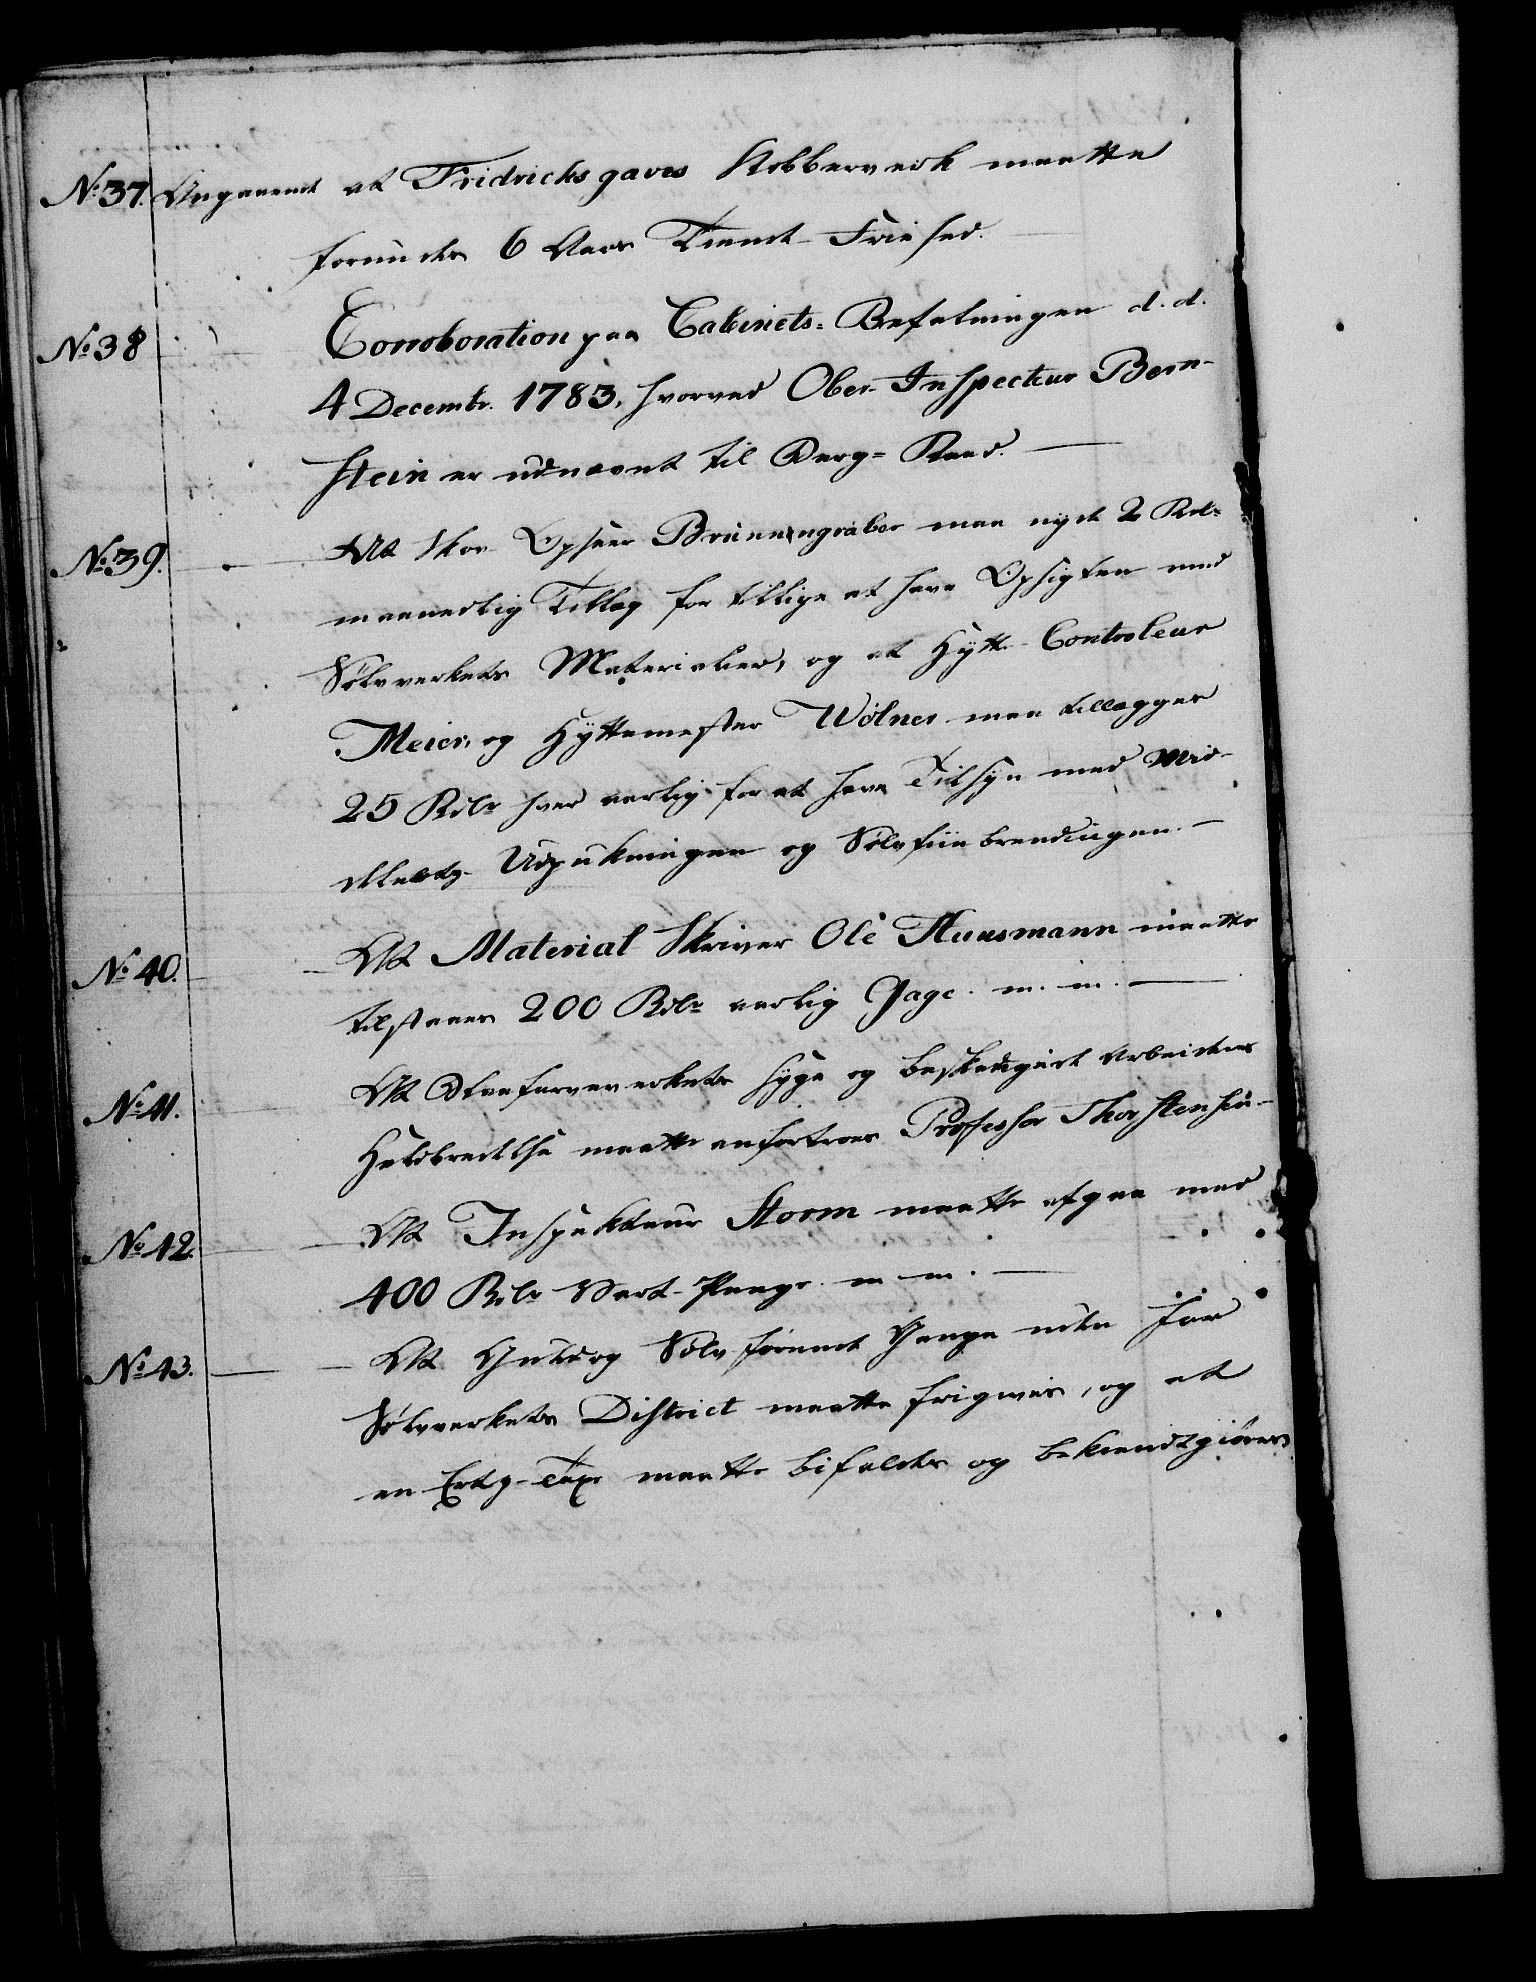 No: 37. Angaaende at Fridrichsgaves Kobberverk maatte
forundes 6 Aars Tiende-Frihed.
No: 38 Corroboration paa Cabinets-Befalningen d. d.
4 Decembr. 1783, hvorved Ober-Inspecteur Bern-
stein er udnævnt til Berg-Raad.
No: 39. At Skov Opseer Brünnengräber maa nyde 2 Rdr
maanedlig Tillæg for tillige at have Opsigten med
Sølvverkets Materialier, og at Hytte-Controleur
Meier, og Hyttemester Wölner maa tillægges
25 Rdlr hver aarlig for at have Tilsyn med
Udpukningen og Sølvfiinbrendingen.
No: 40. At Material Skriver Ole Huusmann maatte
tilstaaes 200 Rdlr aarlig Gage m. m.
No: 41. At Blaafarveverkets syge og beskadigede Arbeideres
Helbredelse maatte anfortroes Professor Thorstensen
No: 42. At Inspekteur Storm maatte afgaae med
400 Rdlr Vart-Penge m. m.
No: 43. At Guld og Sølv førende Gange uden for
Sølvverkets District maatte frigives, og at
en Ertz-Taxe maatte bifaldes og bekiendtgiøres